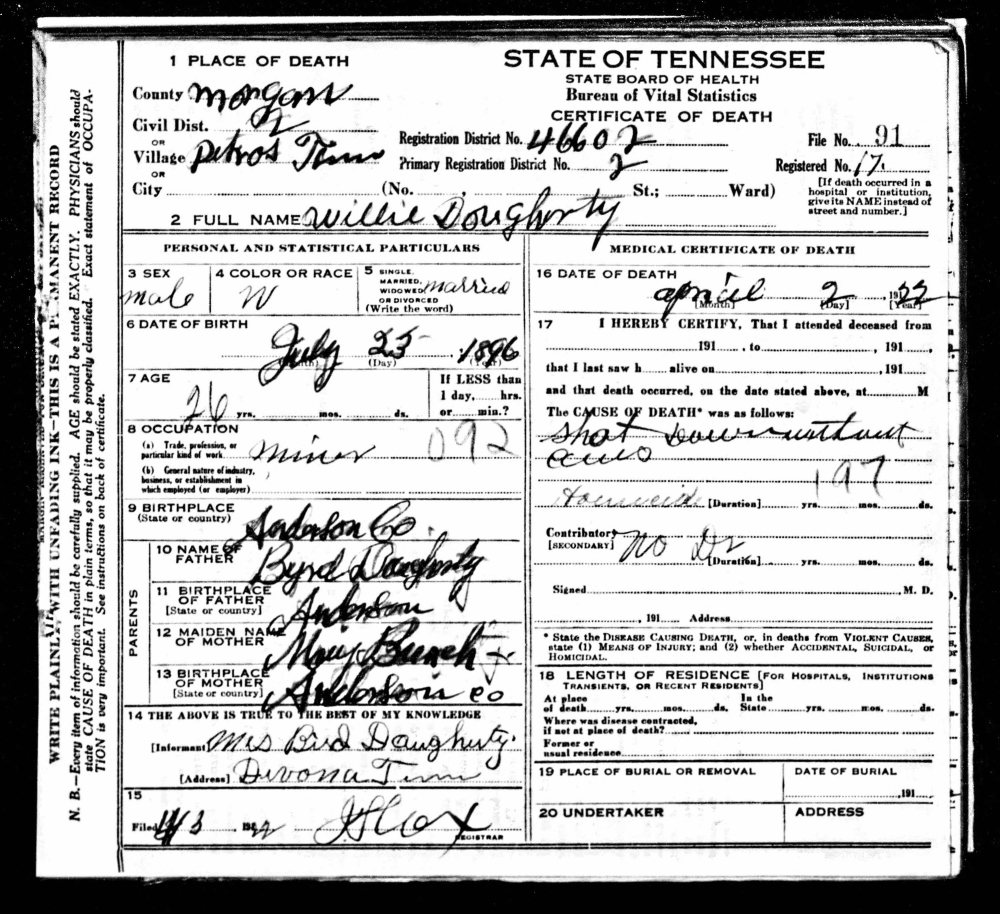 WRITE PLAINLY, WITH UNFADING INK—THIS IS A PERMANENT RECORD
N. B.—Every item of information should be carefully supplied. AGE should be stated EXACTLY. PHYSICIANS should
state CAUSE OF DEATH in plain terms, so that it may be properly classified. Exact statement of OCCUPA-
TION is very important. See instructions on back of certificate.
1 PLACE OF DEATH
County Morgan
Civil Dist. 2
OR
Village Petros Tenn
OR
City (No. , St.; Ward)
STATE OF TENNESSEE
STATE BOARD OF HEALTH
Bureau of Vital Statistics
CERTIFICATE OF DEATH
Registration District No. 46602
Primary Registration District No. 2
File No. 91
Registered No. 17
[If death occurred in a
hospital or institution,
give its NAME instead of
street and number.]
2 FULL NAME Willie Dougherty
PERSONAL AND STATISTICAL PARTICULARS
3 SEX
male
4 COLOR OR RACE
W
5 SINGLE,
MARRIED,
WIDOWED
OR DIVORCED
(Write the word)
married
6 DATE OF BIRTH
July 25 1896
(Month) (Day) (Year)
7 AGE
26 yrs. mos. ds.
If LESS than
1 day, hrs.
or min.?
8 OCCUPATION
(a) Trade, profession, or
particular kind of work miner 092
(b) General nature of industry,
business, or establishment in
which employed (or employer)
9 BIRTHPLACE
(State or country) Anderson Co.
PARENTS
10 NAME OF
FATHER Byrd Daugherty
11 BIRTHPLACE
OF FATHER
[State or country] Anderson
12 MAIDEN NAME
OF MOTHER Bunch
13 BIRTHPLACE
OF MOTHER
[State or country] Anderson co
14 THE ABOVE IS TRUE TO THE BEST OF MY KNOWLEDGE
[Informant] Mrs Bird Daugherty.
[Address] Devonia Tenn
15
Filed 4/3 1922 Cox
REGISTRAR
MEDICAL CERTIFICATE OF DEATH
16 DATE OF DEATH
april 2 1922
[Month] [Day] [Year]
17 I HEREBY CERTIFY, That I attended deceased from
191 , to , 191 ,
that I last saw h alive on , 191 ,
and that death occurred, on the date stated above, at M
The CAUSE OF DEATH* was as follows:
Shot Down without
197
Homicide [Duration] yrs. mos. ds.
Contributory
[SECONDARY] No Dr
[Duration] yrs. mos. ds.
Signed , M. D.
, 191 Address
* State the DISEASE CAUSING DEATH, or, in deaths from VIOLENT CAUSES,
state (1) MEANS OF INJURY; and (2) whether ACCIDENTAL, SUICIDAL, OR
HOMICIDAL.
18 LENGTH OF RESIDENCE [FOR HOSPITALS, INSTITUTIONS
TRANSIENTS, OR RECENT RESIDENTS]
At place In the
of death yrs. mos. ds. State yrs. mos. ds.
Where was disease contracted,
if not at place of death?
Former or
usual residence
19 PLACE OF BURIAL OR REMOVAL
DATE OF BURIAL
,191
20 UNDERTAKER
ADDRESS